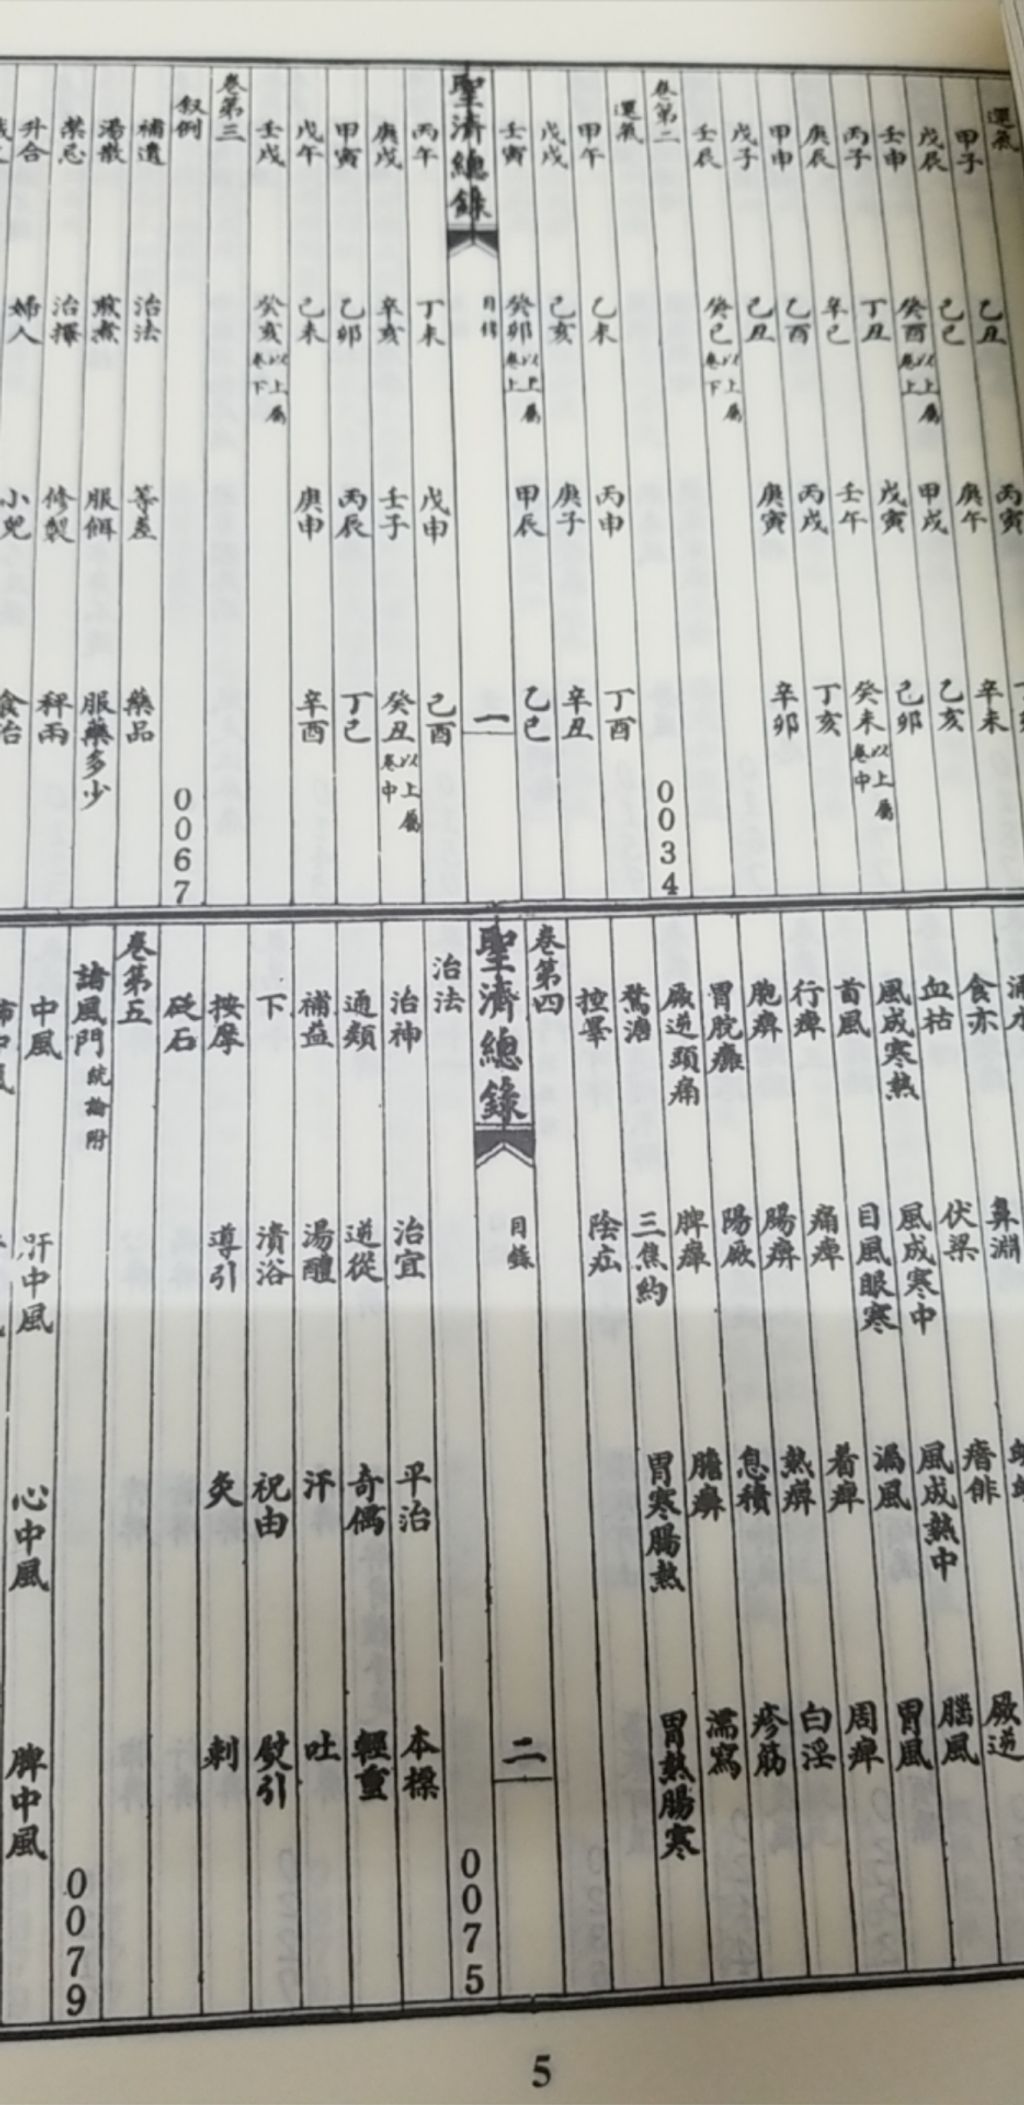 運氣
甲子 乙丑 丙寅
戊辰 己巳 庚午 辛未
壬申 癸酉以上屬卷上 甲戌 乙亥
丙子 丁丑 戊寅 己卯
庚辰 辛巳 壬午 癸未以上屬卷中
甲申 乙酉 丙戌 丁亥
戊子 己丑 庚寅 辛卯
壬辰 癸巳以上屬卷下
卷第二 0034
運氣
甲午 乙未 丙申 丁酉
戊戌 己亥 庚子 辛丑
壬寅 癸卯以上屬卷上 甲辰 乙巳
聖濟總錄 目錄 一
丙午 丁未 戊申 己酉
庚戌 辛亥 壬子 癸丑以上屬卷中
甲寅 乙卯 丙辰 丁巳
戊午 己未 庚申 辛酉
壬戌 癸亥以上屬卷下
卷第三
叙例 0067
補遺 治法 等差 藥品
湯散 煎煮 服餌 服藥多少
禁忌 治擇 修製 秤兩
升合 婦人 小兒 食治
鼻淵 厥逆
食亦 伏梁 瘖俳 腦風
血枯 風成寒中 風成熱中 胃風
風成寒熱 目風眼寒 漏風 周痺
首風 痛痺 着痺 白淫
行痺 腸痹 熱痹 疹筋
胞痹 陽厥 息積 濡寫
胃脘癰 脾癉 膽癉
厥逆頭痛 三焦約 胃寒腸熱 胃熱腸寒
鶩溏 陰疝
控睾
卷第四
聖濟總錄 目錄 二
治法 0075
治神 治宜 平治 本標
通類 逆從 奇偶 輕重
補益 湯醴 汗 吐
下 漬浴 祝由 熨引
按摩 導引 灸 刺
砭石
卷第五
諸風門統論附 0079
中風 肝中風 心中風 脾中風
5